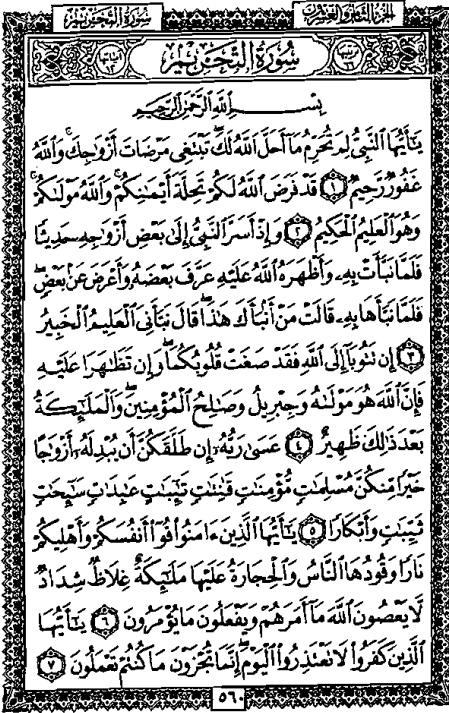 سُورَةُ التَّحۡرِيمِ
الجزء الثامن والعشرون
سُورَةُ التَّحۡرِيمِ
بِسۡمِ ٱللَّهِ ٱلرَّحۡمَٰنِ ٱلرَّحِيمِ
يَٰٓأَيُّهَا ٱلنَّبِيُّ لِمَ تُحَرِّمُ مَآ أَحَلَّ ٱللَّهُ لَكَۖ تَبۡتَغِي مَرۡضَاتَ أَزۡوَٰجِكَۚ وَٱللَّهُ
غَفُورٞ رَّحِيمٞ ١ قَدۡ فَرَضَ ٱللَّهُ لَكُمۡ تَحِلَّةَ أَيۡمَٰنِكُمۡۚ وَٱللَّهُ مَوۡلَىٰكُمۡۖ
وَهُوَ ٱلۡعَلِيمُ ٱلۡحَكِيمُ ٢ وَإِذۡ أَسَرَّ ٱلنَّبِيُّ إِلَىٰ بَعۡضِ أَزۡوَٰجِهِۦ حَدِيثٗا
فَلَمَّا نَبَّأَتۡ بِهِۦ وَأَظۡهَرَهُ ٱللَّهُ عَلَيۡهِ عَرَّفَ بَعۡضَهُۥ وَأَعۡرَضَ عَنۢ بَعۡضٖۖ
فَلَمَّا نَبَّأَهَا بِهِۦ قَالَتۡ مَنۡ أَنۢبَأَكَ هَٰذَاۖ قَالَ نَبَّأَنِيَ ٱلۡعَلِيمُ ٱلۡخَبِيرُ
٣ إِن تَتُوبَآ إِلَى ٱللَّهِ فَقَدۡ صَغَتۡ قُلُوبُكُمَاۖ وَإِن تَظَٰهَرَا عَلَيۡهِ
فَإِنَّ ٱللَّهَ هُوَ مَوۡلَىٰهُ وَجِبۡرِيلُ وَصَٰلِحُ ٱلۡمُؤۡمِنِينَۖ وَٱلۡمَلَٰٓئِكَةُ
بَعۡدَ ذَٰلِكَ ظَهِيرٌ ٤ عَسَىٰ رَبُّهُۥٓ إِن طَلَّقَكُنَّ أَن يُبۡدِلَهُۥٓ أَزۡوَٰجًا
خَيۡرٗا مِّنكُنَّ مُسۡلِمَٰتٖ مُّؤۡمِنَٰتٖ قَٰنِتَٰتٖ تَٰٓئِبَٰتٍ عَٰبِدَٰتٖ سَٰٓئِحَٰتٖ
ثَيِّبَٰتٖ وَأَبۡكَارٗا ٥ يَٰٓأَيُّهَا ٱلَّذِينَ ءَامَنُواْ قُوٓاْ أَنفُسَكُمۡ وَأَهۡلِيكُمۡ
نَارٗا وَقُودُهَا ٱلنَّاسُ وَٱلۡحِجَارَةُ عَلَيۡهَا مَلَٰٓئِكَةٌ غِلَاظٞ شِدَادٞ
لَّا يَعۡصُونَ ٱللَّهَ مَآ أَمَرَهُمۡ وَيَفۡعَلُونَ مَا يُؤۡمَرُونَ ٦ يَٰٓأَيُّهَا
ٱلَّذِينَ كَفَرُواْ لَا تَعۡتَذِرُواْ ٱلۡيَوۡمَۖ إِنَّمَا تُجۡزَوۡنَ مَا كُنتُمۡ تَعۡمَلُونَ ٧
٥٦٠